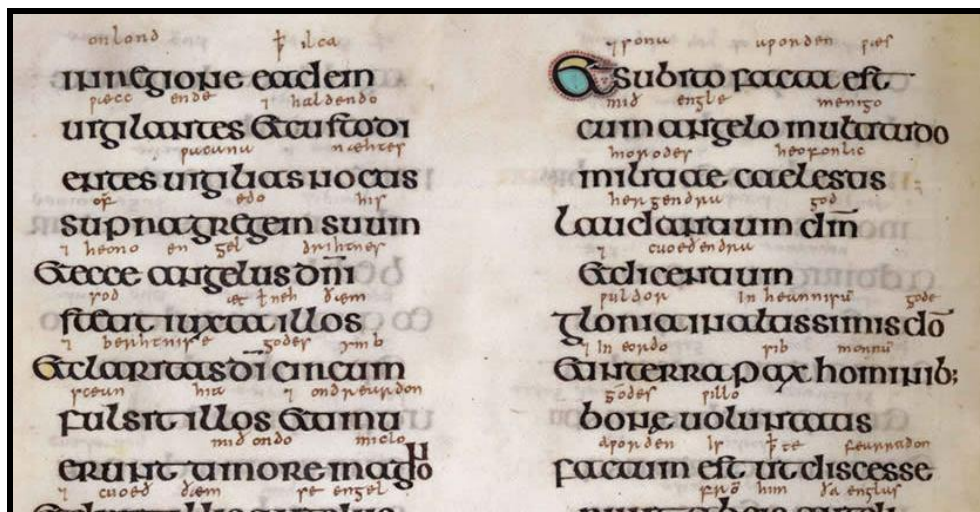 onlond ꝥ ilca
inregione eadem
ƿæcc ende ⁊ haldendo
uigilantes & custodi
næhtes
entes uigilias noctis
edo his
supra gregem suum
⁊ heono en gel drihtnes
& ecce angelus dn̄i
stod æt ł neh ðæm
stetit iuxta illos
⁊ berhtnisse godes ymb
& claritas dī circum
scean hia ⁊ ondreardon
fulsit illos & timu
mið ondo miclo
erunt timore magno
⁊ cuoeð ðæm se engel
⁊ sona aƿorden ƿæs
& subito facta est
mið engle menigo
cum angelo multitudo
heofonlic
militiae caelestis
hergendra god
laudantium dm̄
⁊ cuoeðendra
& dicentium
ƿuldor in heannisū gode
gloria in altissimis dō
⁊ in eordo sib monnū
& in terra pax hominib;
godes ƿillo
bone uoluntatis
aƿorden is ꝥ te
factum est ut discesse
frō him ða englas